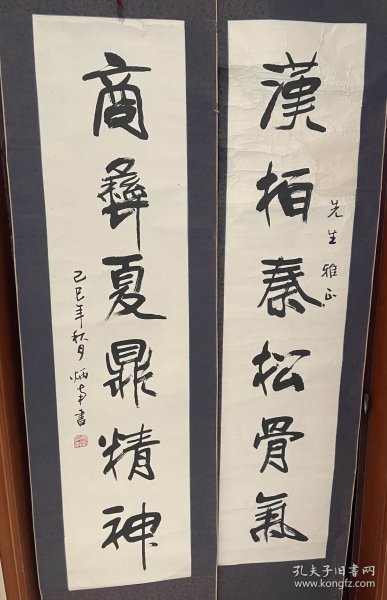 漢柏秦松骨氣
先生雅正
商彝夏鼎精神
己巳年秋月炳南書
孔夫子旧书网
www.kongfz.com